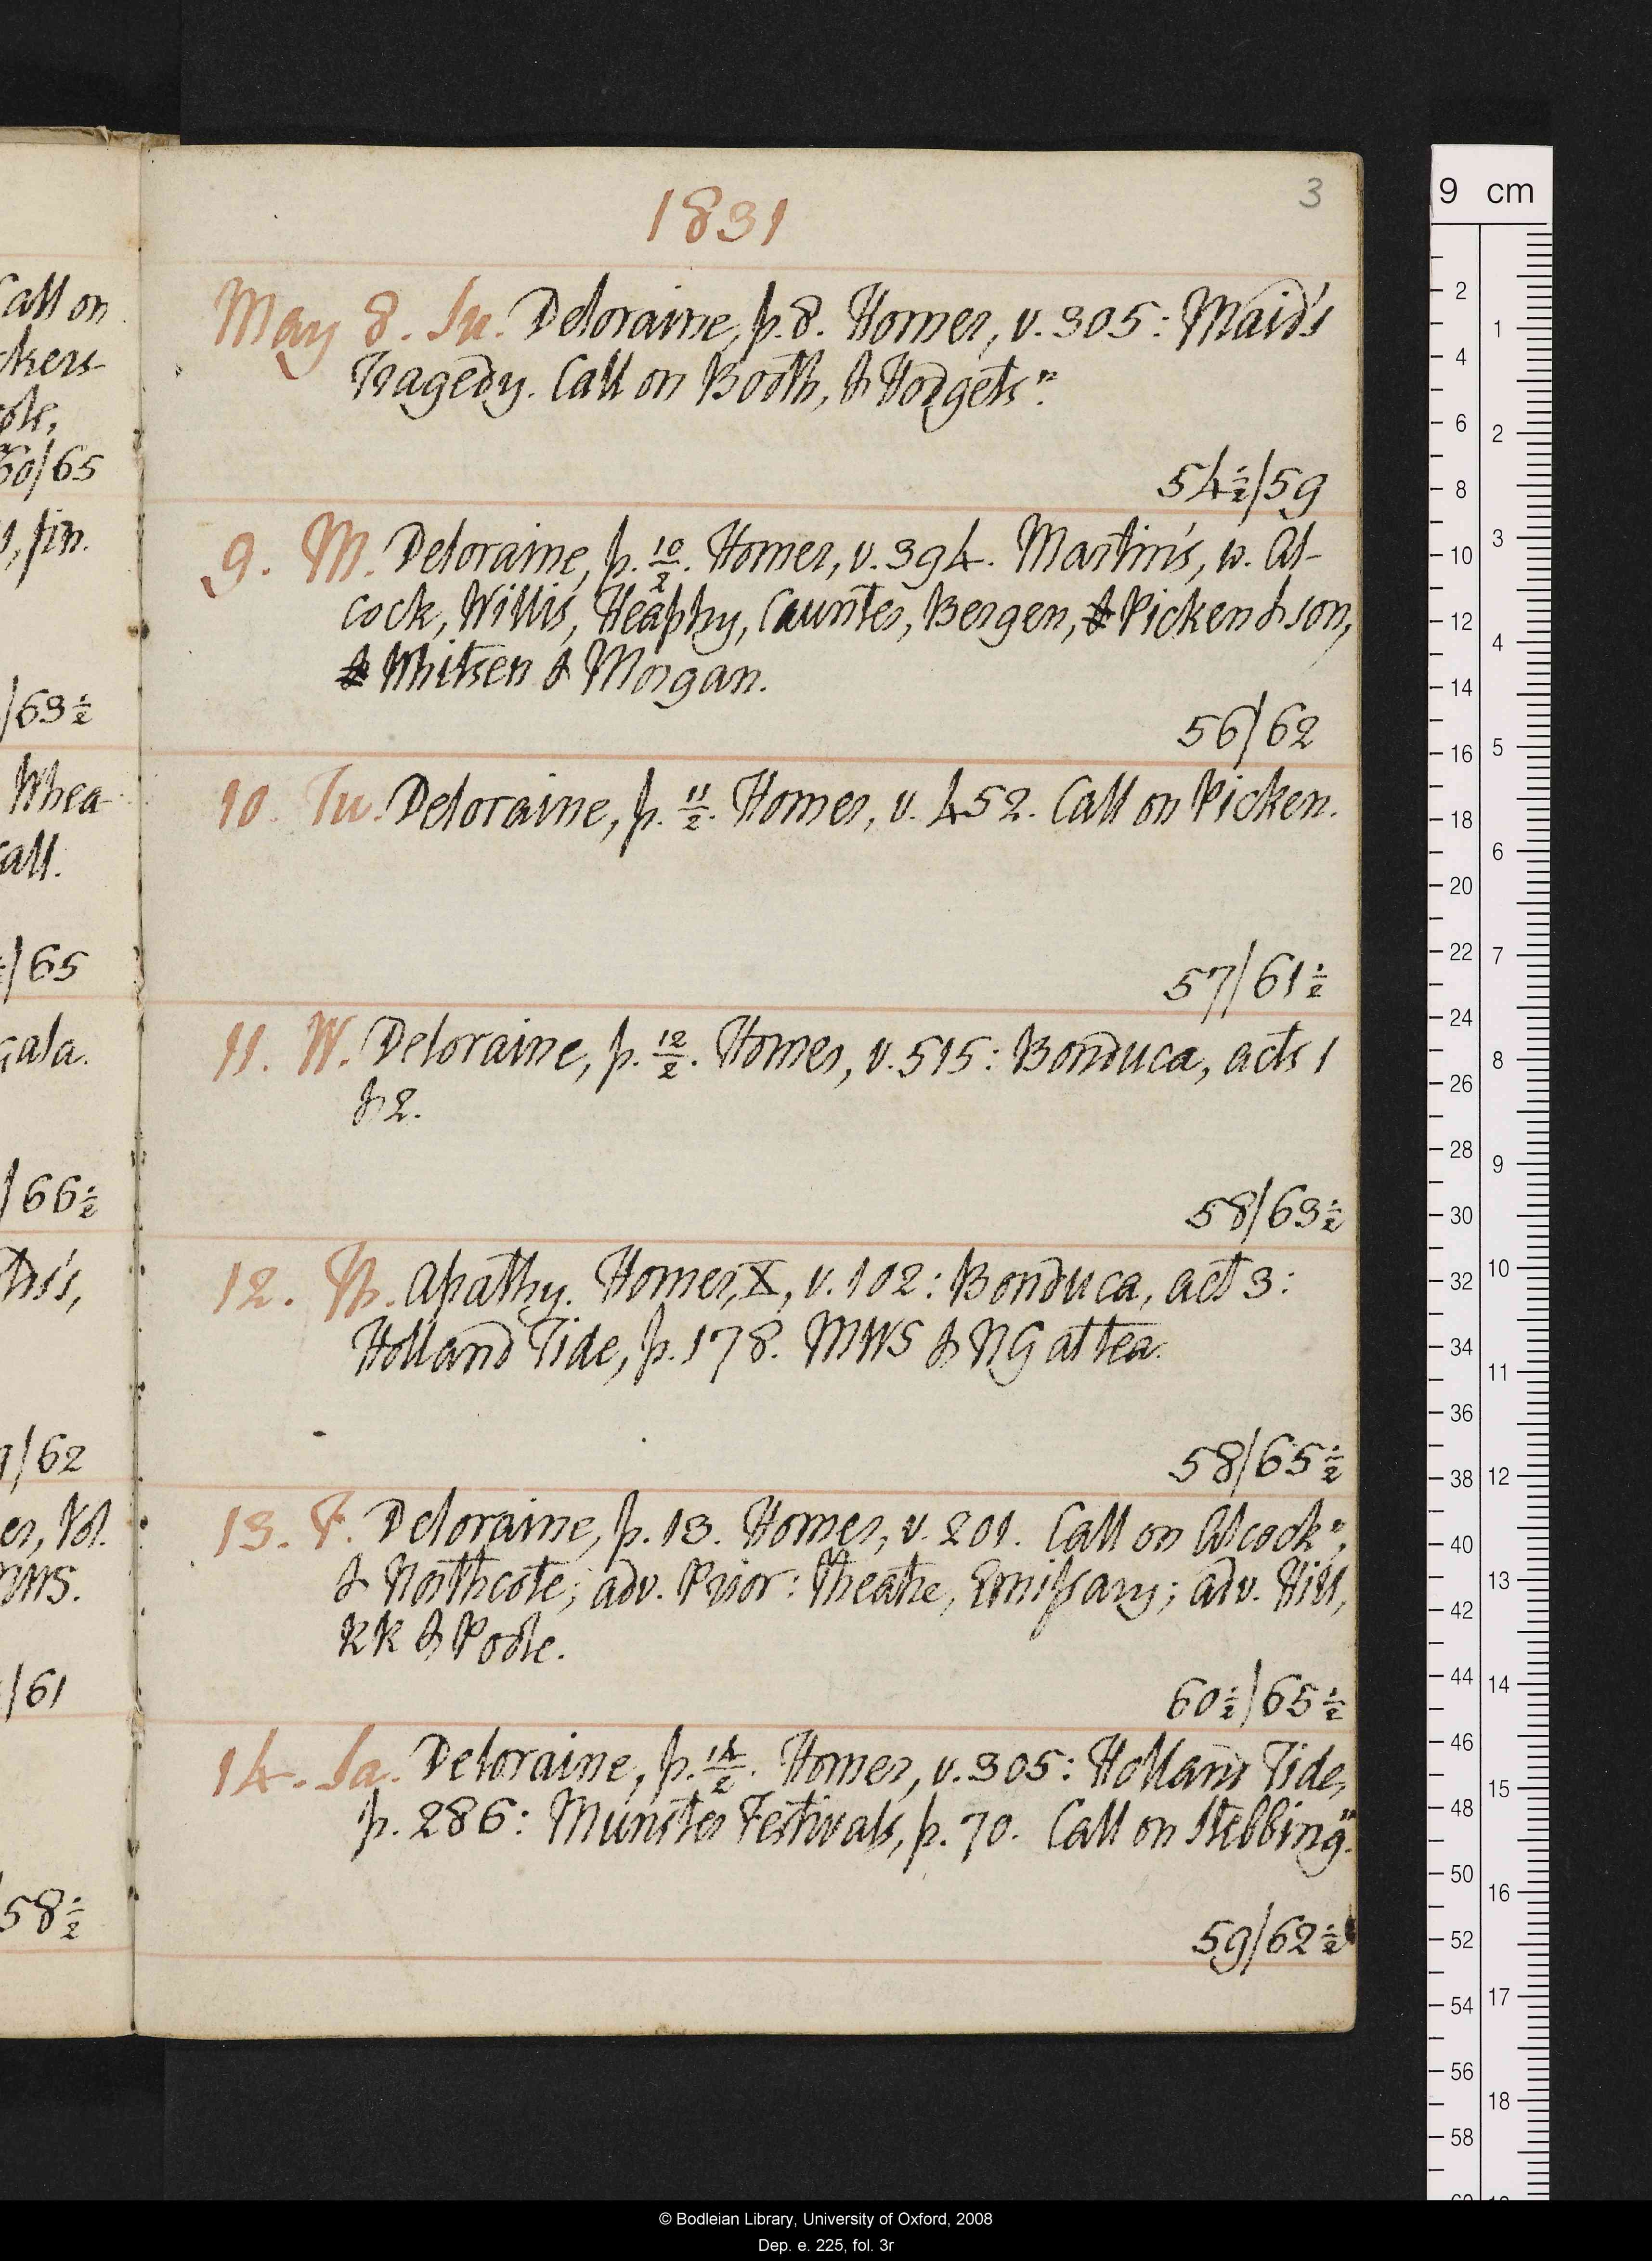 3
1831
May 8. Su. Deloraine, p. 8. Homer, v. 305: Maid's
Tragedy. Call on Booth, & Hodgets n.
54½/59
9. M. Deloraine, p. 10/2. Homer, v. 394. Martin's, w. Al-
cock, Willis, Heaphy, Caunter, Bergen, & Picken & son,
& Whitsen & Morgan.
56/62
10. Tu. Deloraine, p. 11/2. Homer, v. 452. Call on Picken.
57/61½
11. W. Deloraine, p. 12/2. Homer, v. 515: Bonduca, acts 1
& 2.
58/63½
12. Th. Apathy. Homer, X, v. 102: Bonduca, act 3:
Holland Tide, p. 178. MWS & NG at tea.
58/65½
13. F. Deloraine, p. 13. Homer, v. 201. Call on Alcock n,
& Northcote; adv. Prior: Theatre, Emissary; adv. Hill,
KK & Poole.
60½/65½
14. Sa. Deloraine, p. 14/2. Homer, v. 305: Holland Tide,
p. 286: Munster Festivals, p. 70. Call on Stebbing n.
59/62½
all on
kers
ole,
60/65
s, fin.
/63½
Whea
all.
/65
gala.
/66½
tin's,
/62
er, Vol.
MWS.
/61
58½
9 cm
2 4 6 8 10 12 14 16 18 20 22 24 26 28 30 32 34 36 38 40 42 44 46 48 50 52 54 56 58
1 2 3 4 5 6 7 8 9 10 11 12 13 14 15 16 17 18
© Bodleian Library, University of Oxford, 2008
Dep. e. 225, fol. 3r